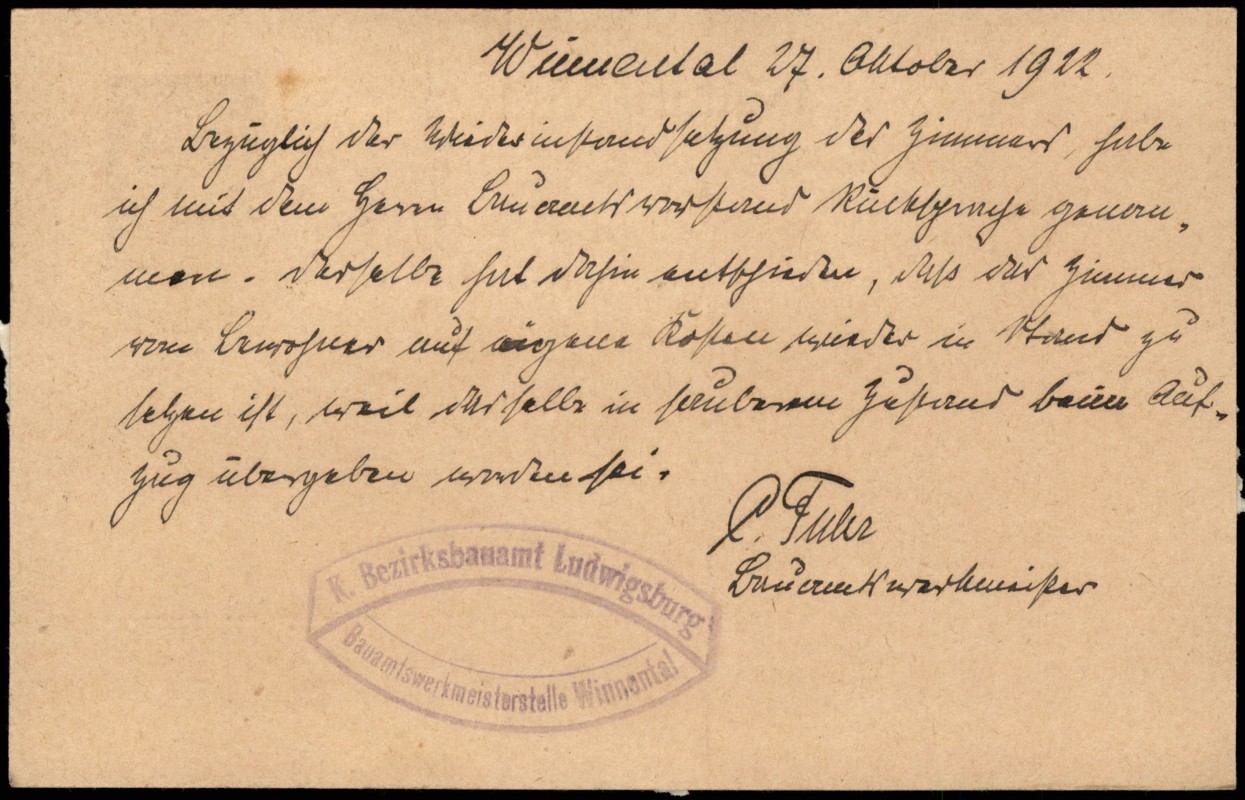 Winnental 27. Oktober 1922.
Bezüglich der Wiederinstandsetzung des Zimmers, habe
ich mit dem Herrn Bauamtsvorstand Rücksprache genom-
men. Derselbe hat dahin entschieden, daß das Zimmer
vom Bewohner auf eigene Kosten wieder in Stand zu
setzen ist, weil dasselbe in sauberem Zustand beim Auf-
zug übergeben worden sei.
Fuhr
Bauamtswerkmeister
K. Bezirksbauamt Ludwigsburg
Bauamtswerkmeisterstelle Winnental